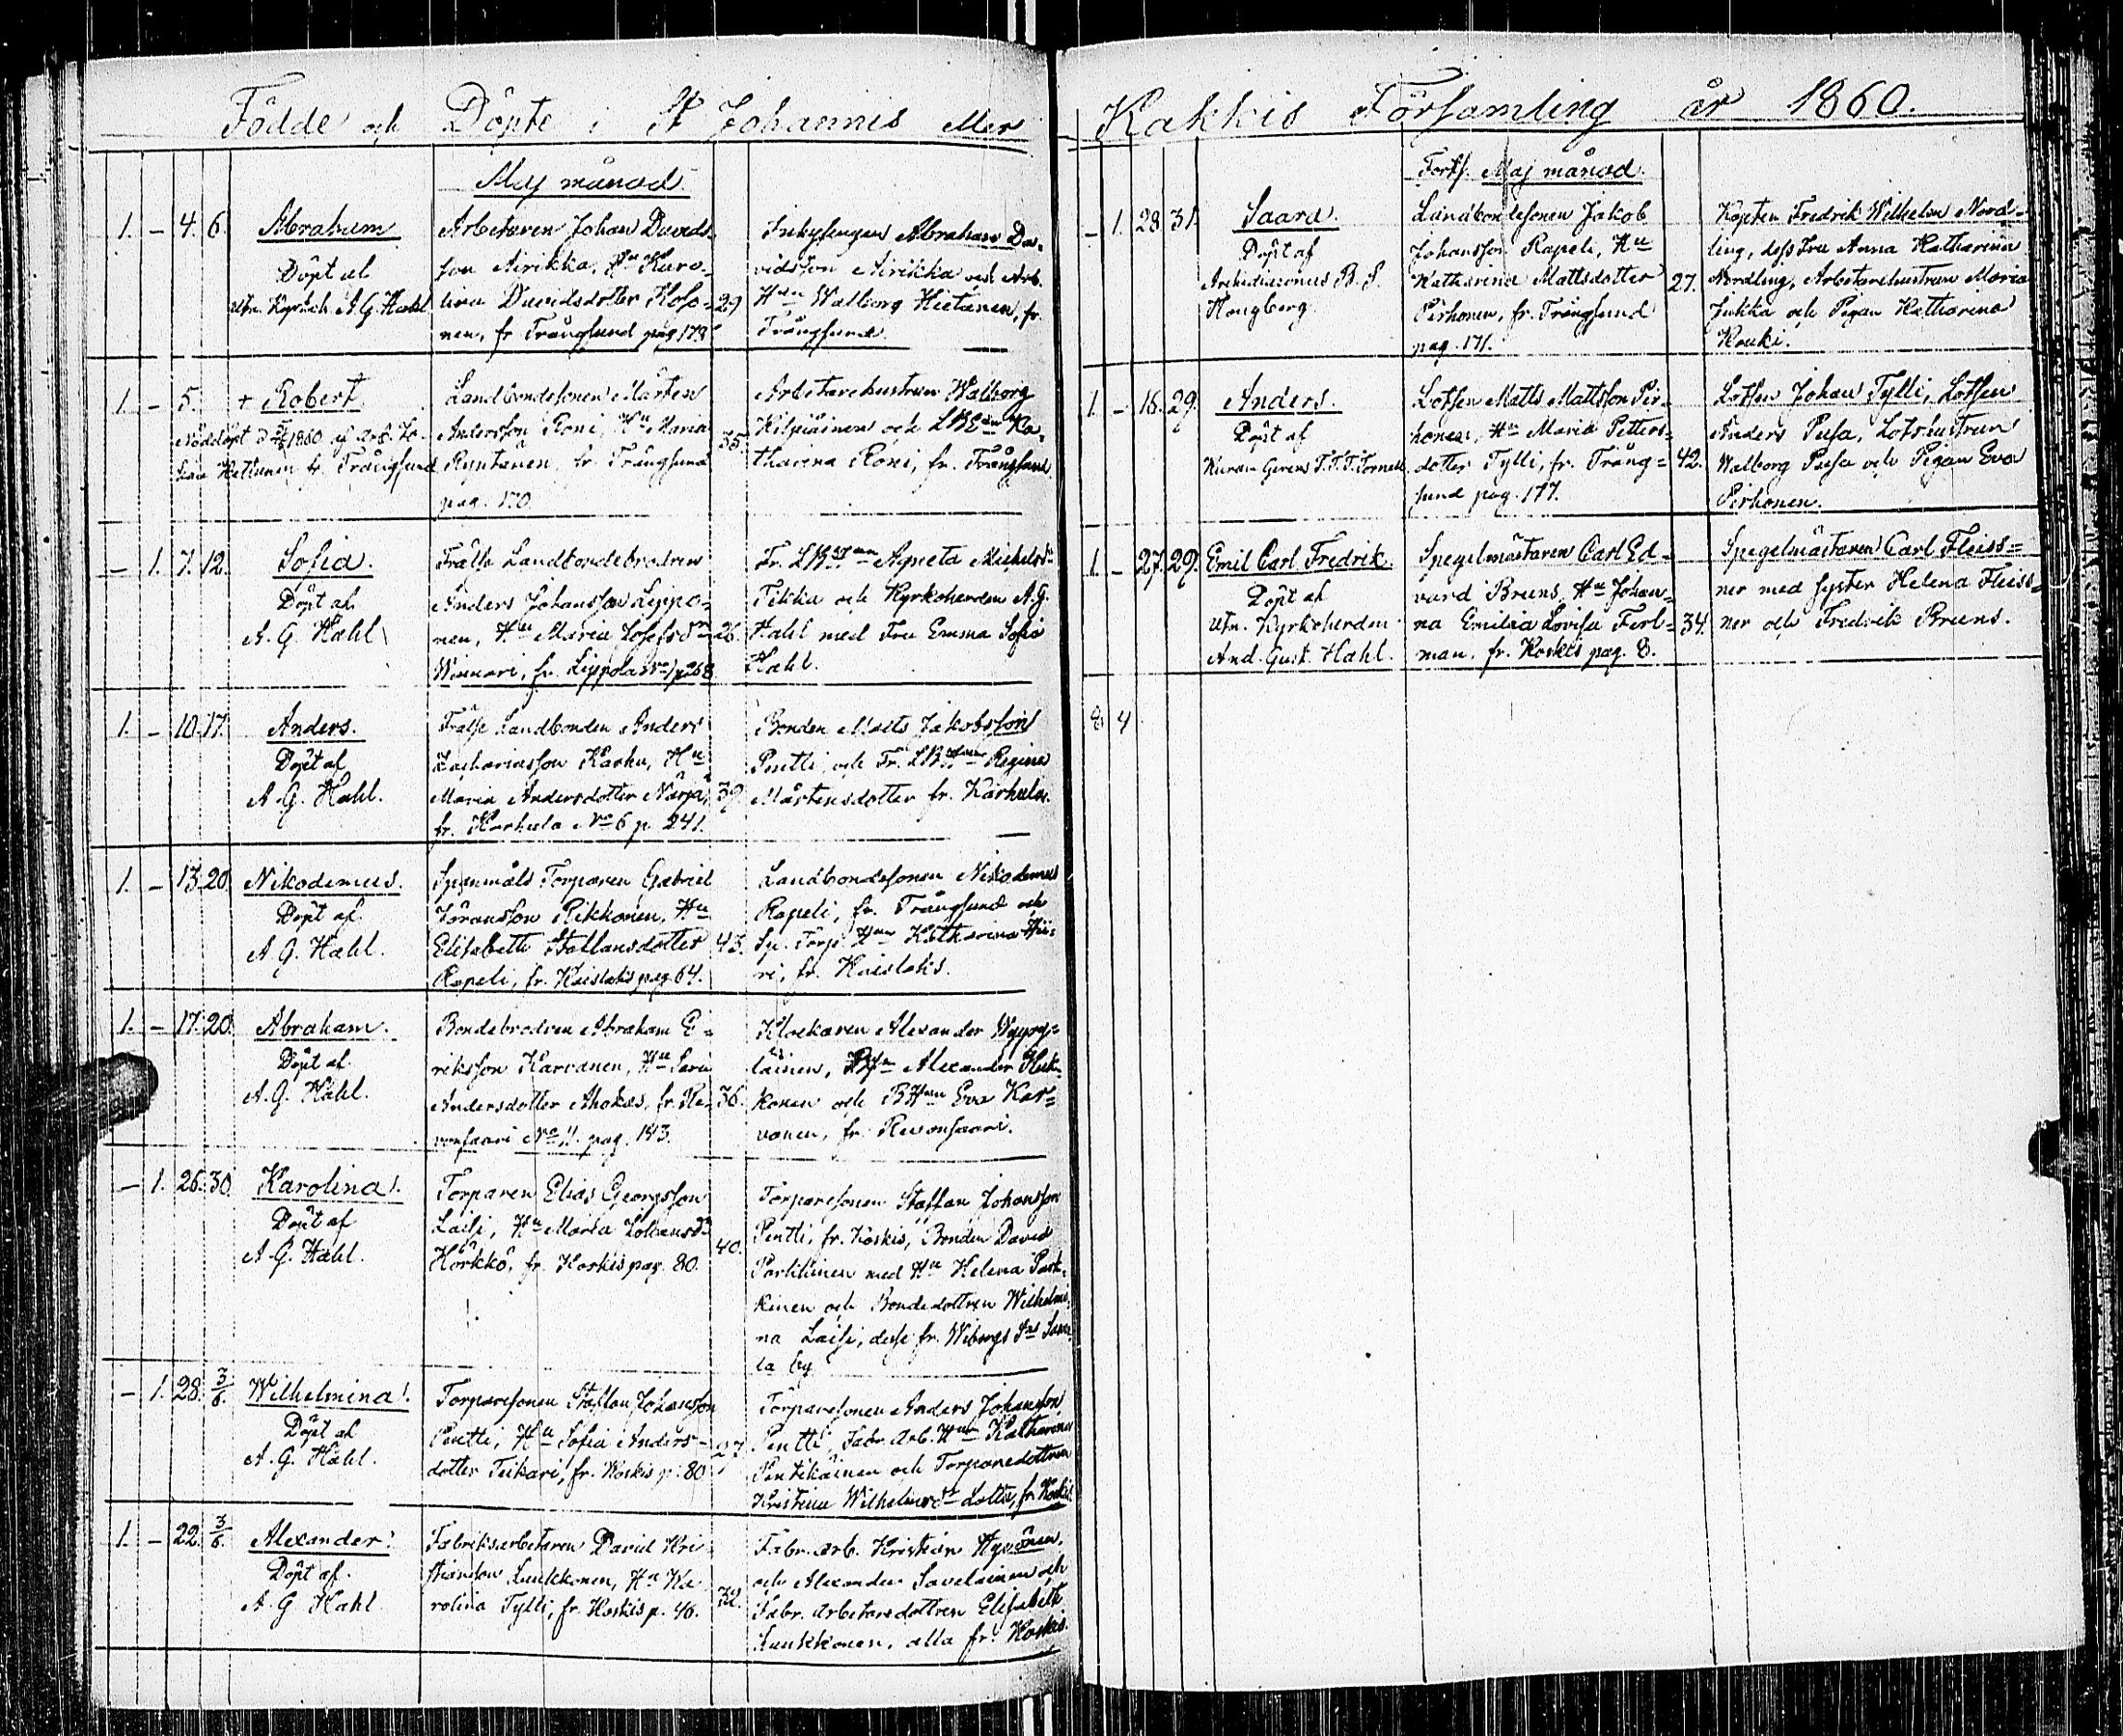 Födde och Döpte i St Johannis eller
Maj månad.
1. - 4. 6. Abraham
Döpt af
A. G. Hahl
Arbetaren Johan Davids-
son Airikka, Hu Karo-
lina Davidsdotter Koso-
nen, fr Trångsund pag 178
29
Abraham Da-
vidsson Airikka och Arb.
Hun Walborg Hietanen, fr.
Trångsund.
1. - 5. + Robert
Nöddöpt d 5/5 1860 af Arb. Jo-
han fr. Trångsund
Landbondesonen Mårten
Andersson Roni, Hu Maria
Ryntänen, fr. Trångsund
pag. 170.
35.
Arbetarehustrun Walborg
Kilpiäinen och LBEan Ka-
tharina Roni, fr. Trångsund
- 1. 7. 12. Sofia.
Döpt af
A. G. Hahl
Frälse Landbondebrodren
Anders Johansson Lyppo-
nen, Hu Maria Josefsdr
fr. Lippola No 1 p. 268
26.
Fr. LBHun Agneta Michelsdr
Tikka och Kyrkoherden A. G.
Hahl med Fru Emma Sofia
Hahl.
1. - 10. 17. Anders.
Döpt af
A. G. Hahl.
Frälse Landbonden Anders
Zachariasson Karhu, Hu
Maria Andersdotter Närjä,
fr. Karhula No 6 p. 241.
39.
Bonden Matts Jakobsson
Pentti och Fr. LBHun Regina
Mårtensdotter fr. Karhula.
1. - 13. 20. Nikodemus.
Döpt af
A. G. Hahl.
Torparen Gabriel
Göransson Pikkonen, Hu
Elisabeth Staffansdotter
Rapeli, fr. Kaislaks pag. 64.
43.
Landbondesonen Nikodemus
Rapeli, fr. Trångsund och
Sp. Torp. Hun Katharina Hii-
ri, fr. Kaislaks.
1. - 17. 20. Abraham.
Döpt af
A. G. Hahl.
Bondebrodren Abraham E-
riksson Karvanen, Hu Sara
Andersdotter Ahokas, fr. Re-
vonsaari No 11. pag. 143.
36.
Klockaren Alexander Wyyry-
läinen, Alexander Kuk-
konen och BHun Eva Kar-
vanen, fr. Revonsaari.
- 1. 26. 30. Karolina.
Döpt af
A. G. Hahl.
Torparen Elias Georgsson
Laisi, Hu Maria Johansdr
Hörkkö, fr. Koskis pag. 80.
40.
Torparesonen Staffan Johansson
Pentti, fr. Koskis, Bonden David
Partikinen med Hu Helena
kinen och Bondedottren Wilhelmi-
na Laisi, desse fr. Wiborgs Sn
la by
- 1. 28. 3/6. Wilhelmina.
Döpt af
A. G. Hahl.
Torparesonen Staffan Johansson
Pentti, Hu Sofia Anders-
dotter Teikari, fr. Koskis p. 80
27.
Torparesonen Anders Johansson
Pentti, Fabr. Arb. Hun Katharina
Pentikäinen och Torparedottren
Kristina Wilhelmsdr Lotta, fr. Koskis
1. - 22. 3/6. Alexander.
Döpt af
A. G. Hahl
Fabriksarbetaren David Kri-
stiansson Luukkonen, Hu Ka-
rolina Tylli, fr. Koskis p. 46.
32.
Fabr. arb. Kristian Hyvönen,
och Alexander Savolainen och
Fabr. Arbetaredottren Elisabeth
Luukkonen, alla fr. Koskis.
Kakkis Församling år 1860.
Forts. Maj månad.
- 1. 28. 31. Saara.
Döpt af
Archidiaconus B. S.
Hougberg
Landbondesonen Jakob
Johansson Rapeli, Hu
Katharina Mattsdotter
Pirhonen, fr. Trångsund
pag. 171.
27.
Kapten Fredrik Wilhelm Nord-
ling, dess Fru Anna Katharina
Nordling, Arbetarehustrun Maria
Jukka och Pigan Katharina
Kouki.
1. - 16. 29. Anders.
Döpt af
Lotsen Matts Mattsson Pir-
honen, Hu Maria Petters-
dotter Tylli, fr. Trång-
sund pag. 177.
42.
Lotsen Johan Tylli, Lotsen
Anders Pusa, Lotshustrun
Walborg Pusa och Pigan Eva
Pirhonen.
1. - 27. 29. Emil Carl Fredrik.
Döpt af
Utn. Kyrkoherden
And. Gust. Hahl.
Spegelmästaren Carl Ed-
vard Bruns, Hu Johan-
na Emilia Lovisa Ferl-
man, fr. Koskis pag. 8.
34.
Spegelmästaren Carl Fleiss-
ner med syster Helena Fleiss-
ner och Fredrik Bruns.
8 4